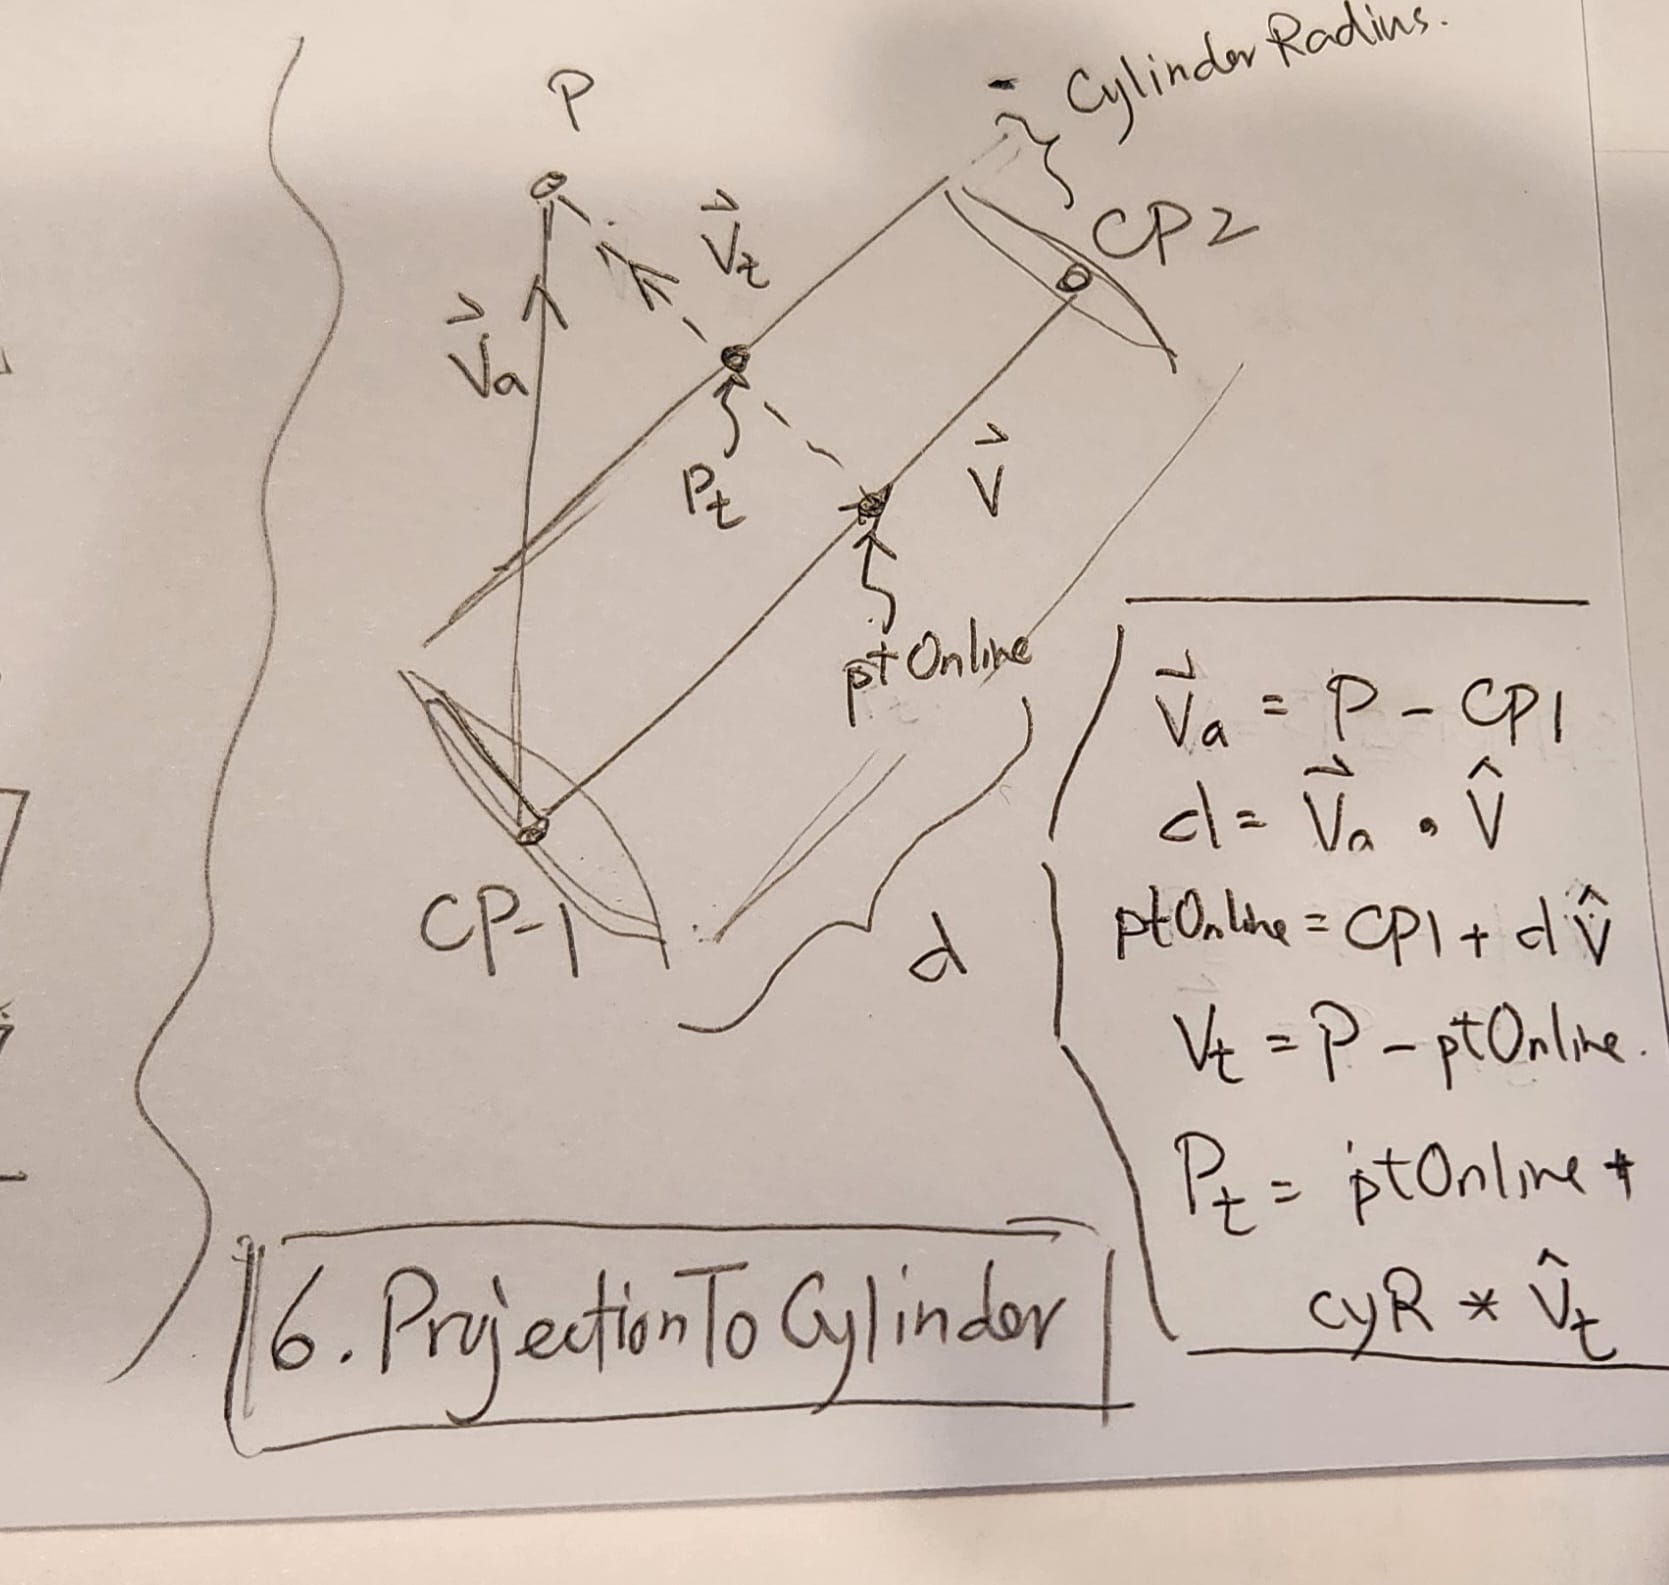 Cylinder Radius.
P
CP2
V⃗t
V⃗a
V⃗
Pt
ptOnline
CP-1
d
V⃗a = P - CP1
d = V⃗a • V̂
ptOnline = CP1 + d V̂
Vt = P - ptOnline.
Pt = ptOnline +
cyR * V̂t
6. ProjectionToCylinder